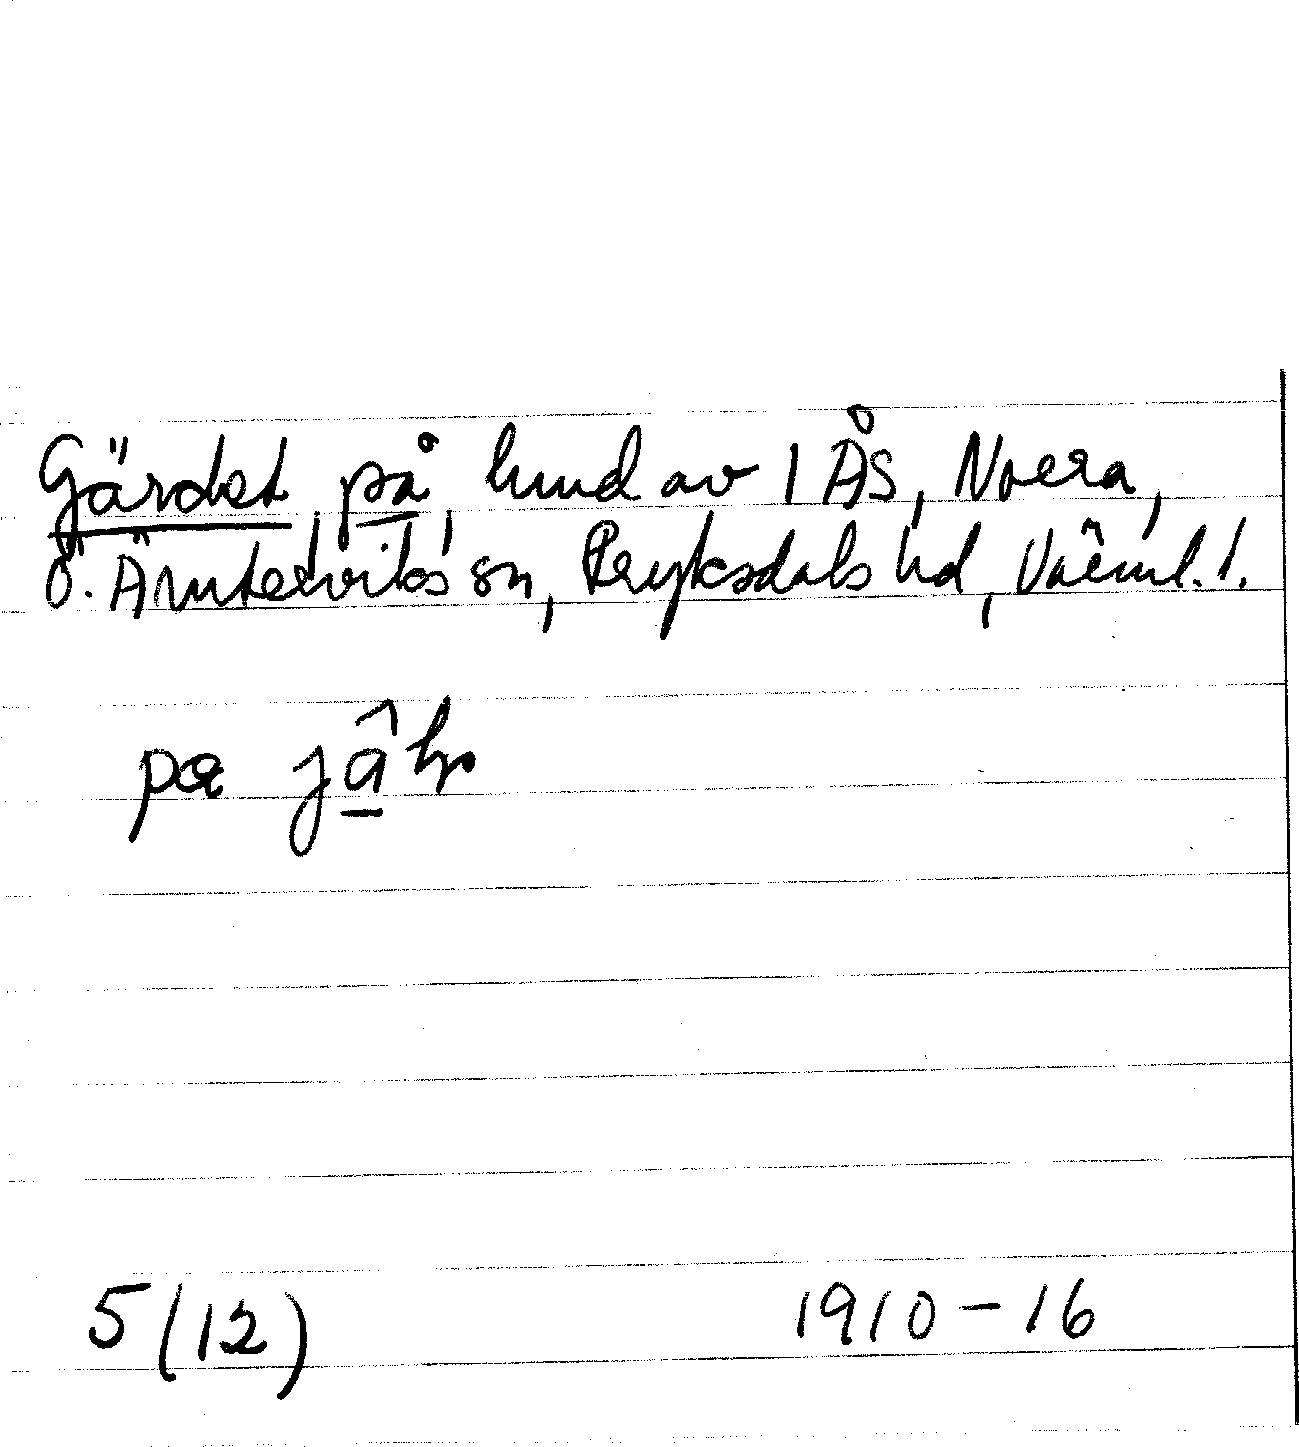 Gärdet, på, hmd av 1 ÅS, Norra,
Ö. Ämterviks sn, Fryksdals hd, Värml. l.
pα
5(12) 1910-16